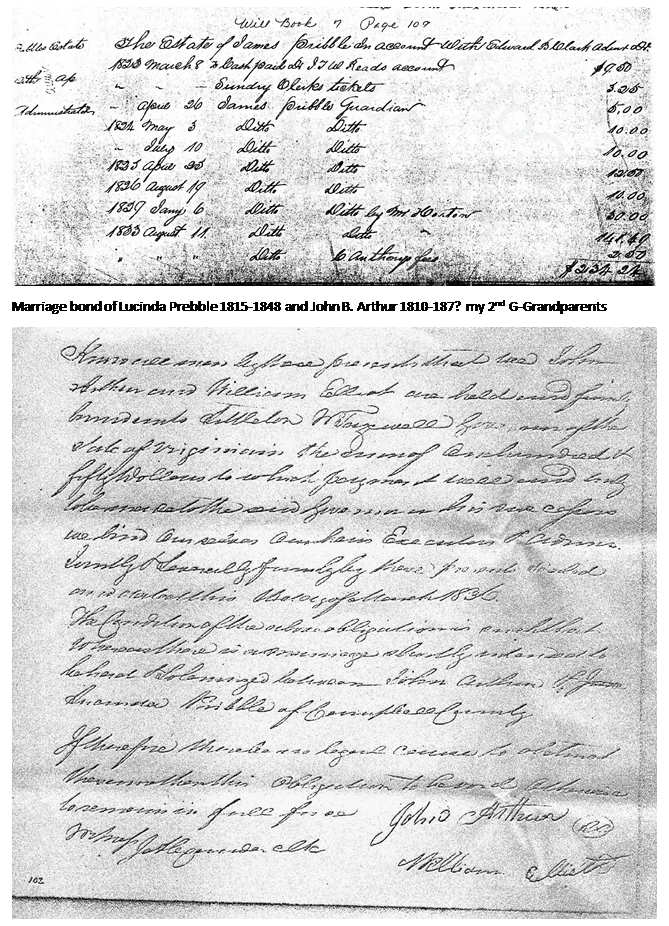 Will Book 7 Page 109
Estate The Estate of James Pribble In account With Edward B Clark admr Dr
1823 March 8 To Cash paid J T W Reads account $9.50
" " " Sundry Clerks tickets 3.25
Administrator " April 26 James Pribble Guardian 5.00
1824 May 3 Ditto Ditto 10.00
" July 10 Ditto Ditto 10.00
1825 April 23 Ditto Ditto
1826 August 19 Ditto Ditto 10.00
1829 Jany 6 Ditto Ditto by Mr Horton 30.00
1833 August 11 Ditto Ditto "
" " " Ditto C Anthony fees 2.50
$234.24
Marriage bond of Lucinda Prebble 1815-1848 and John B. Arthur 1810-187? my 2nd G-Grandparents
Know all men by these presents that we John
Arthur and William Elliot are held and firmly
bound unto Littleton W Tazewell Governor of the
State of Virginia in the sum of One hundred &
fifty dollars to which payment well and truly
to be made to the said Governor or his successors
we bind ourselves our heirs Executors & Admrs
Jointly & Severally firmly by these presents Sealed
and dated this day of March 183
The Condition of the above obligation is such that
Whereas there is a marriage shortly intended to
be had & Solemnized between John Arthur &
Lucinda Pribble of Campbell County
If therefore there be no legal cause to obstruct
then this obligation to be void otherwise
to remain in full force John Arthur
Jno Alexander clk William Elliott
102